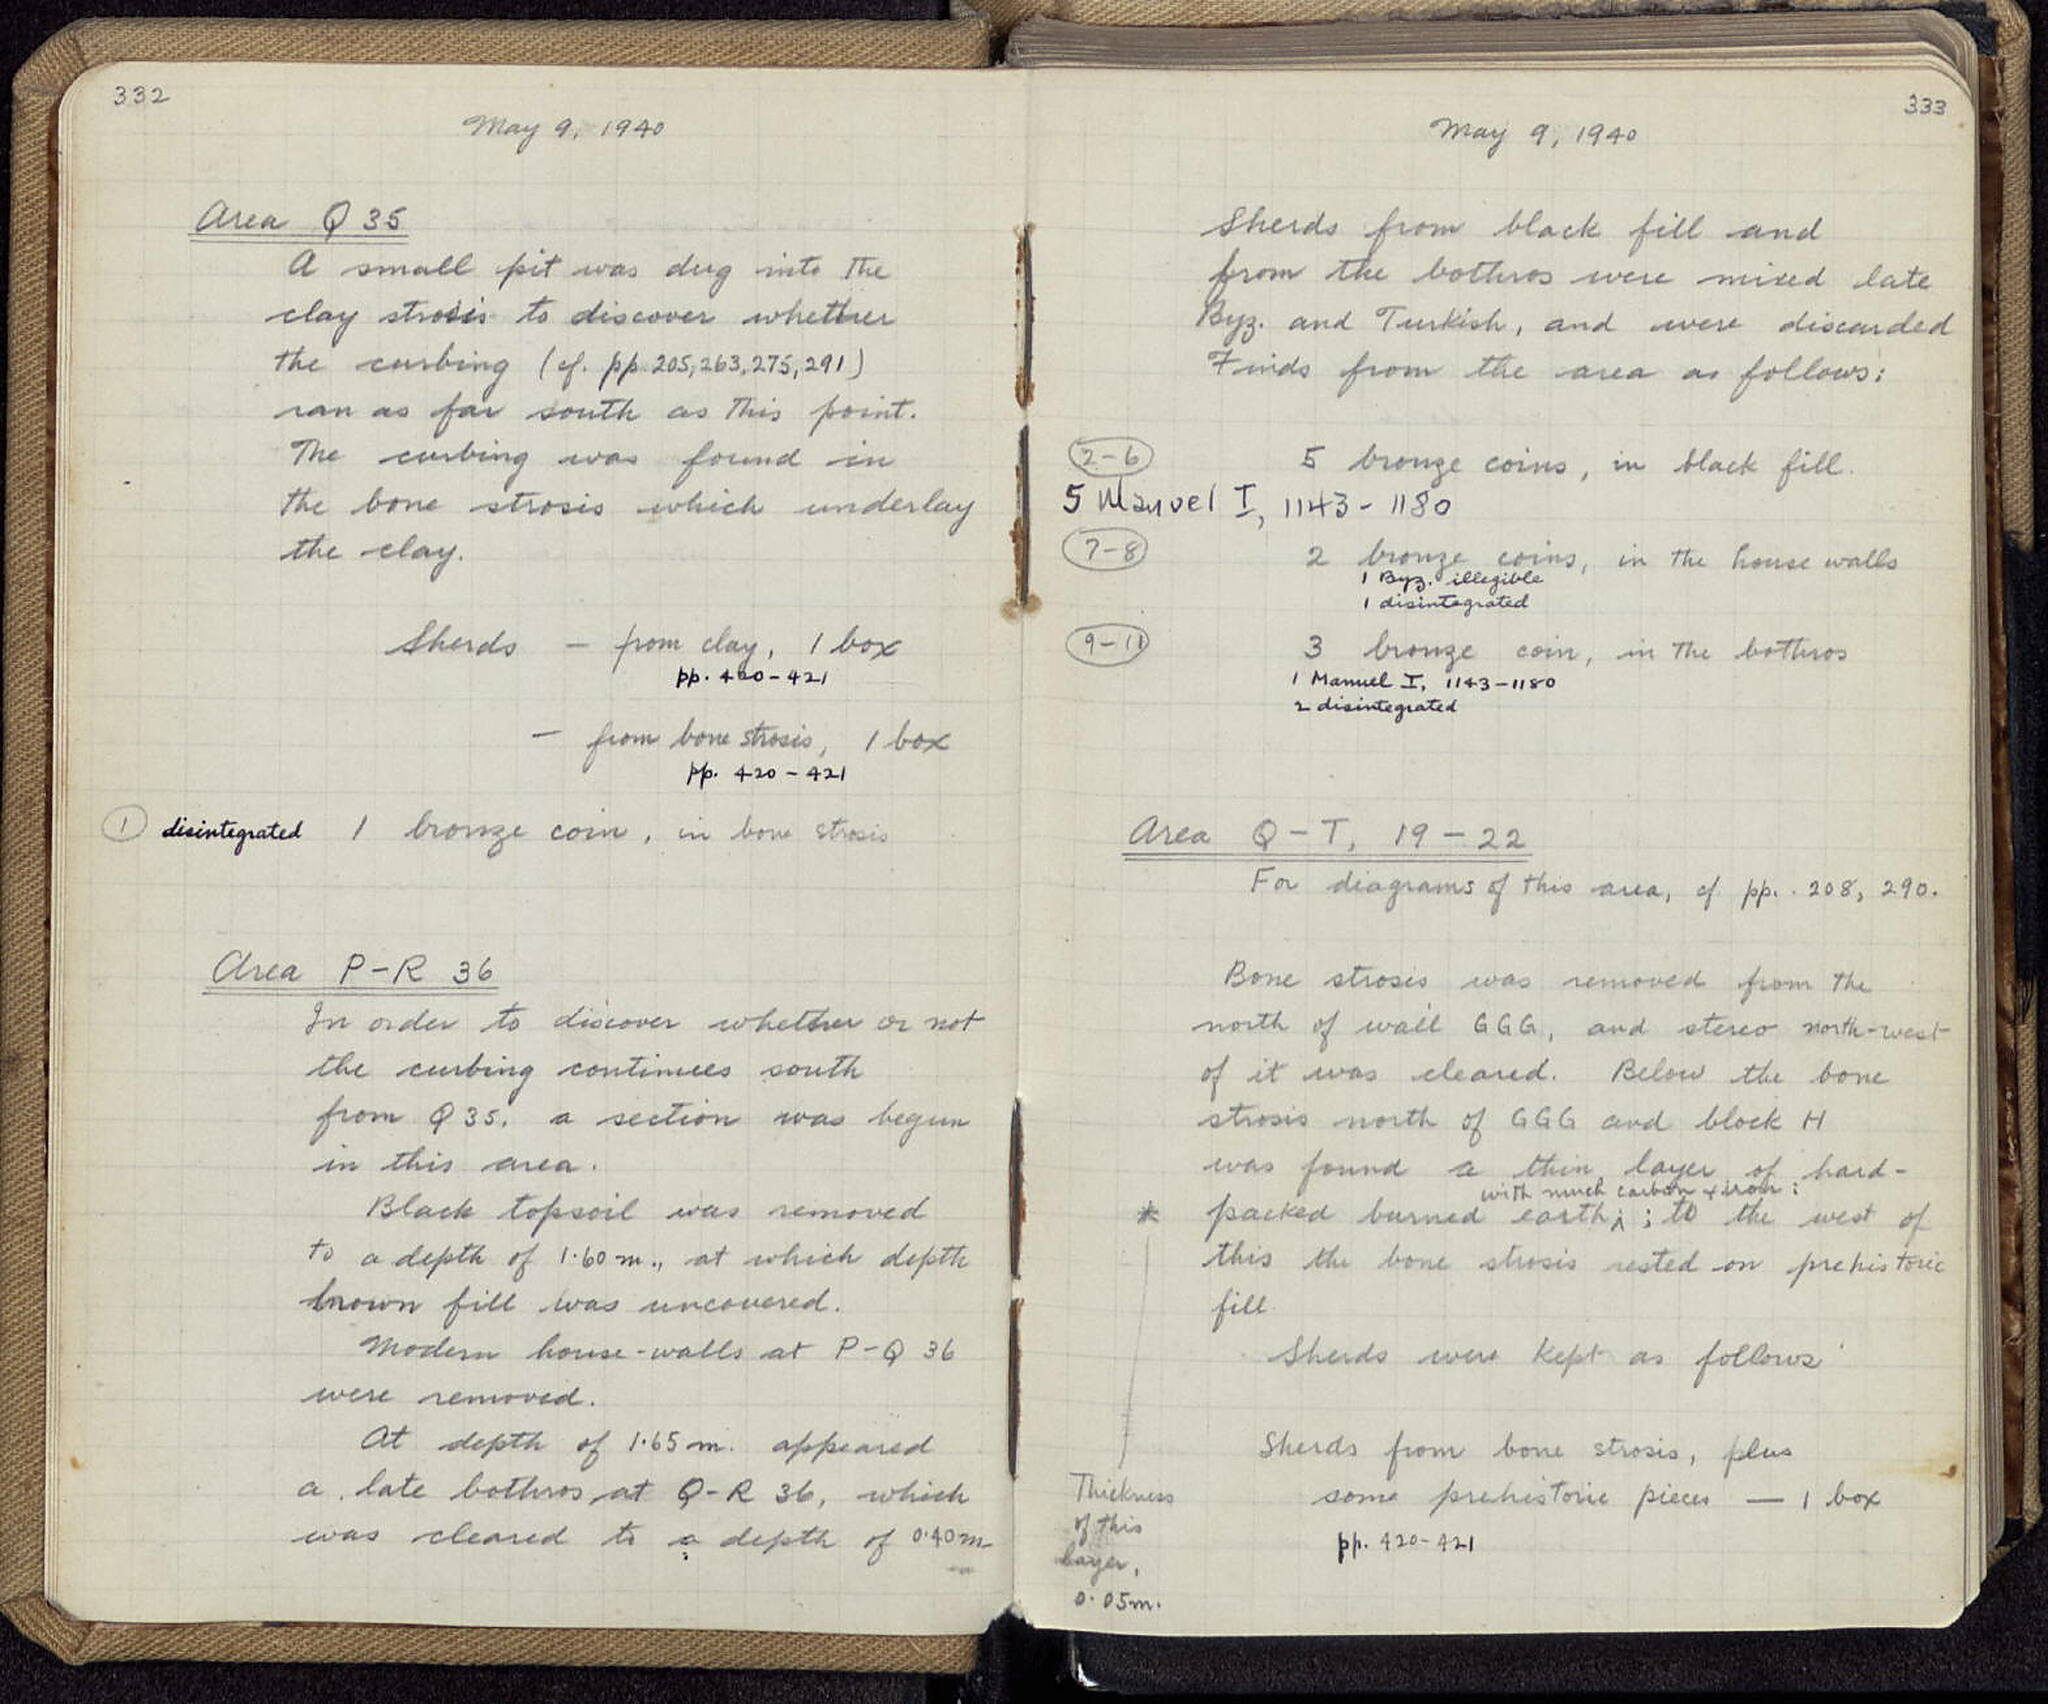 332
May 9, 1940
Area Q 35
A small pit was dug into the
clay strosis to discover whether
the curbing (cf. pp. 205, 263, 275, 291)
ran as far south as this point.
The curbing was found in
the bone strosis which underlay
the clay.
Sherds — from clay, 1 box
pp. 420-421
— from bone strosis, 1 box
pp. 420-421
1 disintegrated 1 bronze coin, in bone strosis
Area P-R 36
In order to discover whether or not
the curbing continues south
from Q 35, a section was begun
in this area.
Black topsoil was removed
to a depth of 1.60 m., at which depth
brown fill was uncovered.
Modern house-walls at P-Q 36
were removed.
At depth of 1.65 m. appeared
a late bothros at Q-R 36, which
was cleared to a depth of 0.40 m
333
May 9, 1940
Sherds from black fill and
from the bothros were mixed late
Byz. and Turkish, and were discarded
Finds from the area as follows:
2-6 5 bronze coins, in black fill.
5 Manuel I, 1143-1180
7-8 2 bronze coins, in the house walls
1 Byz. illegible
1 disintegrated
9-11 3 bronze coin, in the bothros
1 Manuel I, 1143-1180
2 disintegrated
Area Q-T, 19-22
For diagrams of this area, cf pp. 208, 290.
Bone strosis was removed from the
north of wall GGG, and stereo north-west
of it was cleared. Below the bone
strosis north of GGG and block H
was found a thin layer of hard-
with much carbon + iron;
* packed burned earth; to the west of
this the bone strosis rested on prehistoric
fill.
Sherds were kept as follows
Sherds from bone strosis, plus
some prehistoric pieces — 1 box
pp. 420-421
Thickness
of this
layer,
0.05m.